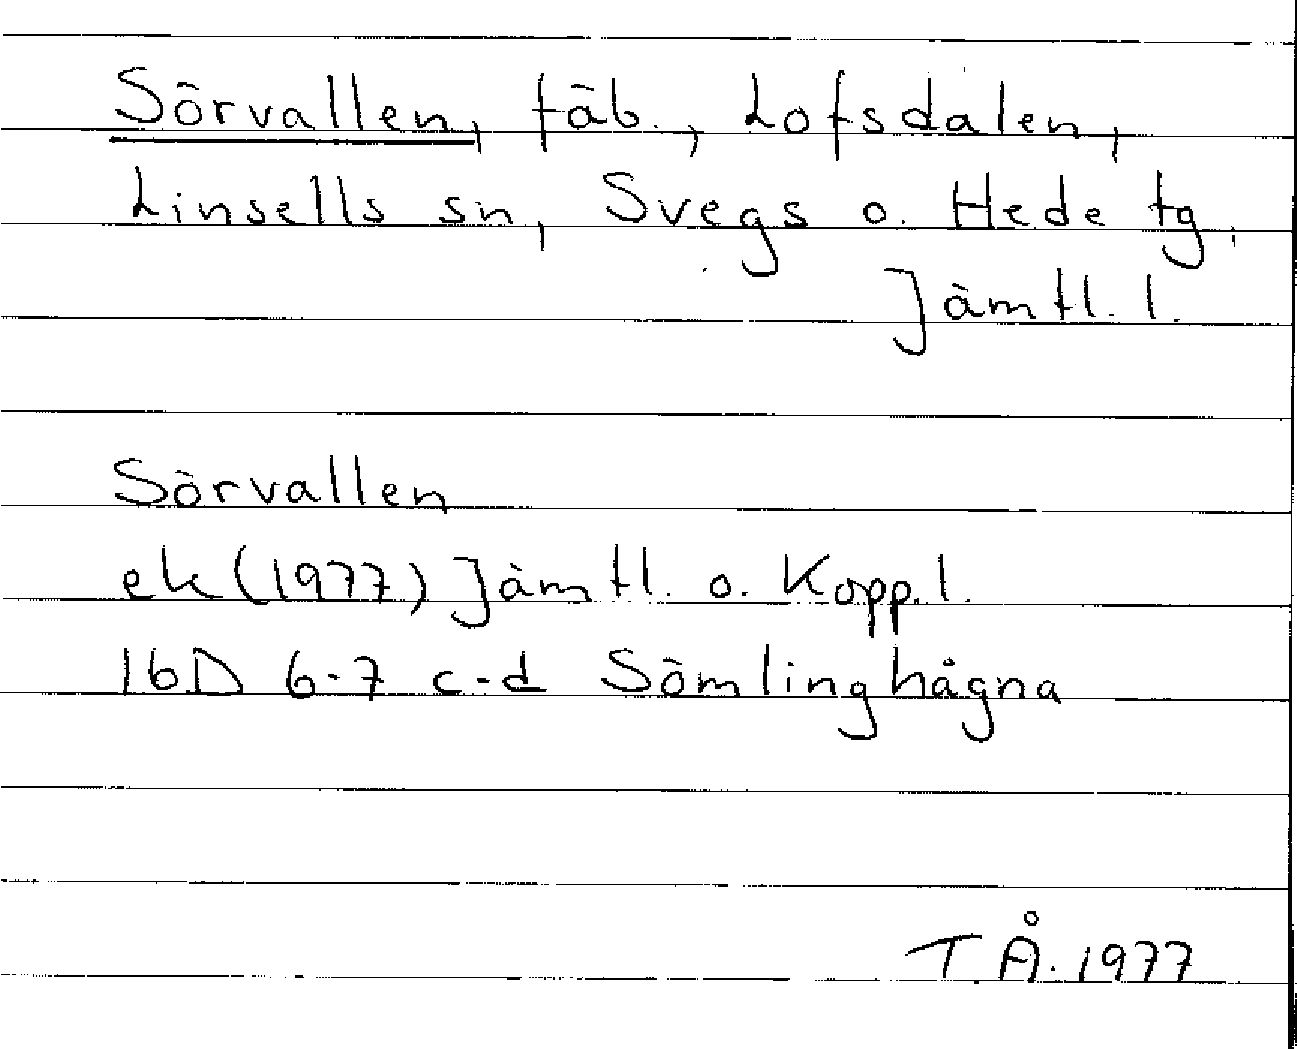 Sörvallen, fäb., Lofsdalen,
Linsells sn, Svegs o. Hede tg,
Jämtl. l.
Sörvallen
ek (1977) Jämtl. o. Kopp. l.
16D 6-7 c-d Sömlinghågna
T.Å. 1977